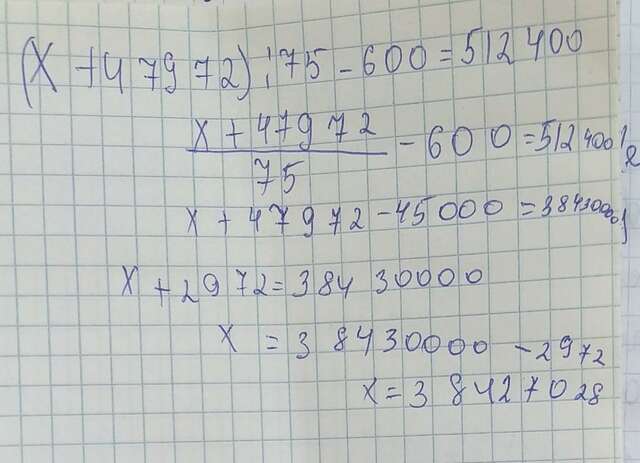 (x + 47972) : 75 - 600 = 512400
x + 47972
75
- 600 = 512400
x + 47972 - 45000 = 38430000
x + 2972 = 38430000
x = 38430000 - 2972
x = 38427028